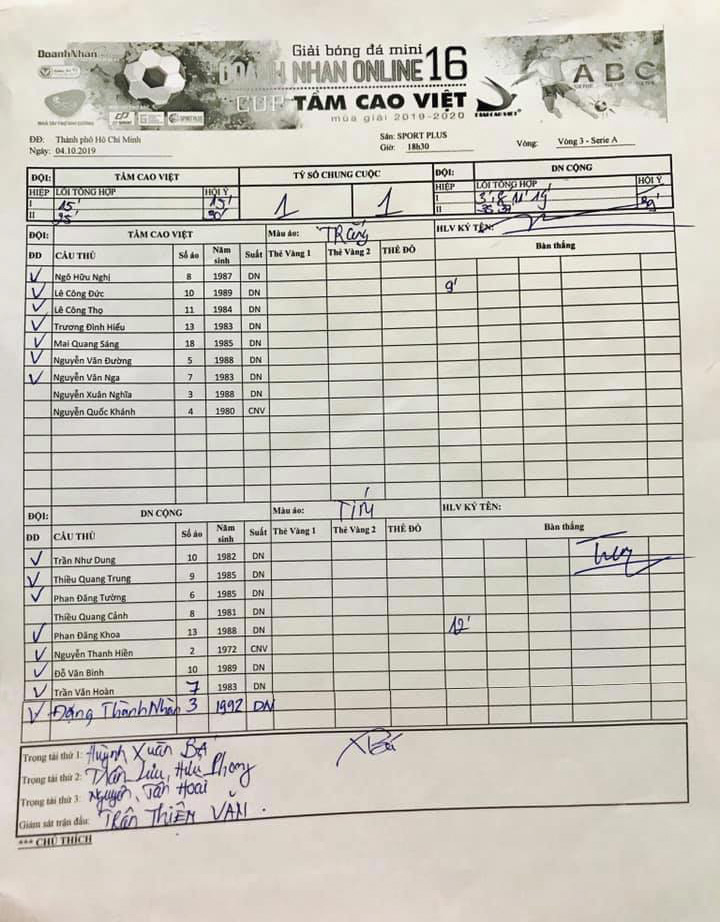 DoanhNhan
Giải bóng đá mini
DOANH NHAN ONLINE 16
CUP TẦM CAO VIỆT
mùa giải 2019-2020
TAM CAO VIET
A B C
SPORT PLUS
ĐĐ: Thành phố Hồ Chí Minh Sân: SPORT PLUS Vòng: Vòng 3 - Serie A
Ngày: 04.10.2019 Giờ: 18h30
ĐỘI: TẦM CAO VIỆT TỶ SỐ CHUNG CUỘC ĐỘI: DN CỘNG
HIỆP LỖI TỔNG HỢP HỘI Ý 1 1 HIỆP LỖI TỔNG HỢP HỘI Ý
I 15' 15' I 3', 8', 11', 19'
II 35' 30' II 35, 39' 39'
ĐỘI: TẦM CAO VIỆT Màu áo: TRẮNG HLV KÝ TÊN:
ĐD CẦU THỦ Số áo Năm sinh Suất Thẻ Vàng 1 Thẻ Vàng 2 THẺ ĐỎ Bàn thắng
Ngô Hữu Nghị 8 1987 DN
Lê Công Đức 10 1989 DN 9'
Lê Công Thọ 11 1984 DN
Trương Đình Hiếu 13 1983 DN
Mai Quang Sáng 18 1985 DN
Nguyễn Văn Đường 5 1988 DN
Nguyễn Văn Nga 7 1983 DN
Nguyễn Xuân Nghĩa 3 1988 DN
Nguyễn Quốc Khánh 4 1980 CNV
ĐỘI: DN CỘNG Màu áo: TÍM HLV KÝ TÊN:
ĐD CẦU THỦ Số áo Năm sinh Suất Thẻ Vàng 1 Thẻ Vàng 2 THẺ ĐỎ Bàn thắng
Trần Như Dung 10 1982 DN
Thiều Quang Trung 9 1985 DN
Phan Đăng Tường 6 1985 DN
Thiều Quang Cảnh 8 1981 DN
Phan Đăng Khoa 13 1988 DN 12'
Nguyễn Thanh Hiền 2 1972 CNV
Đỗ Văn Bình 10 1989 DN
Trần Văn Hoàn 7 1983 DN
Đặng Thành Nhân 3 1992 DN
Trọng tài thứ 1: Huỳnh Xuân Bá
Trọng tài thứ 2: Trần Lưu, Hữu Phong
Trọng tài thứ 3: Nguyễn, Tấn Hoài
Giám sát trận đấu: TRẦN THIỆN VĂN.
*** CHÚ THÍCH